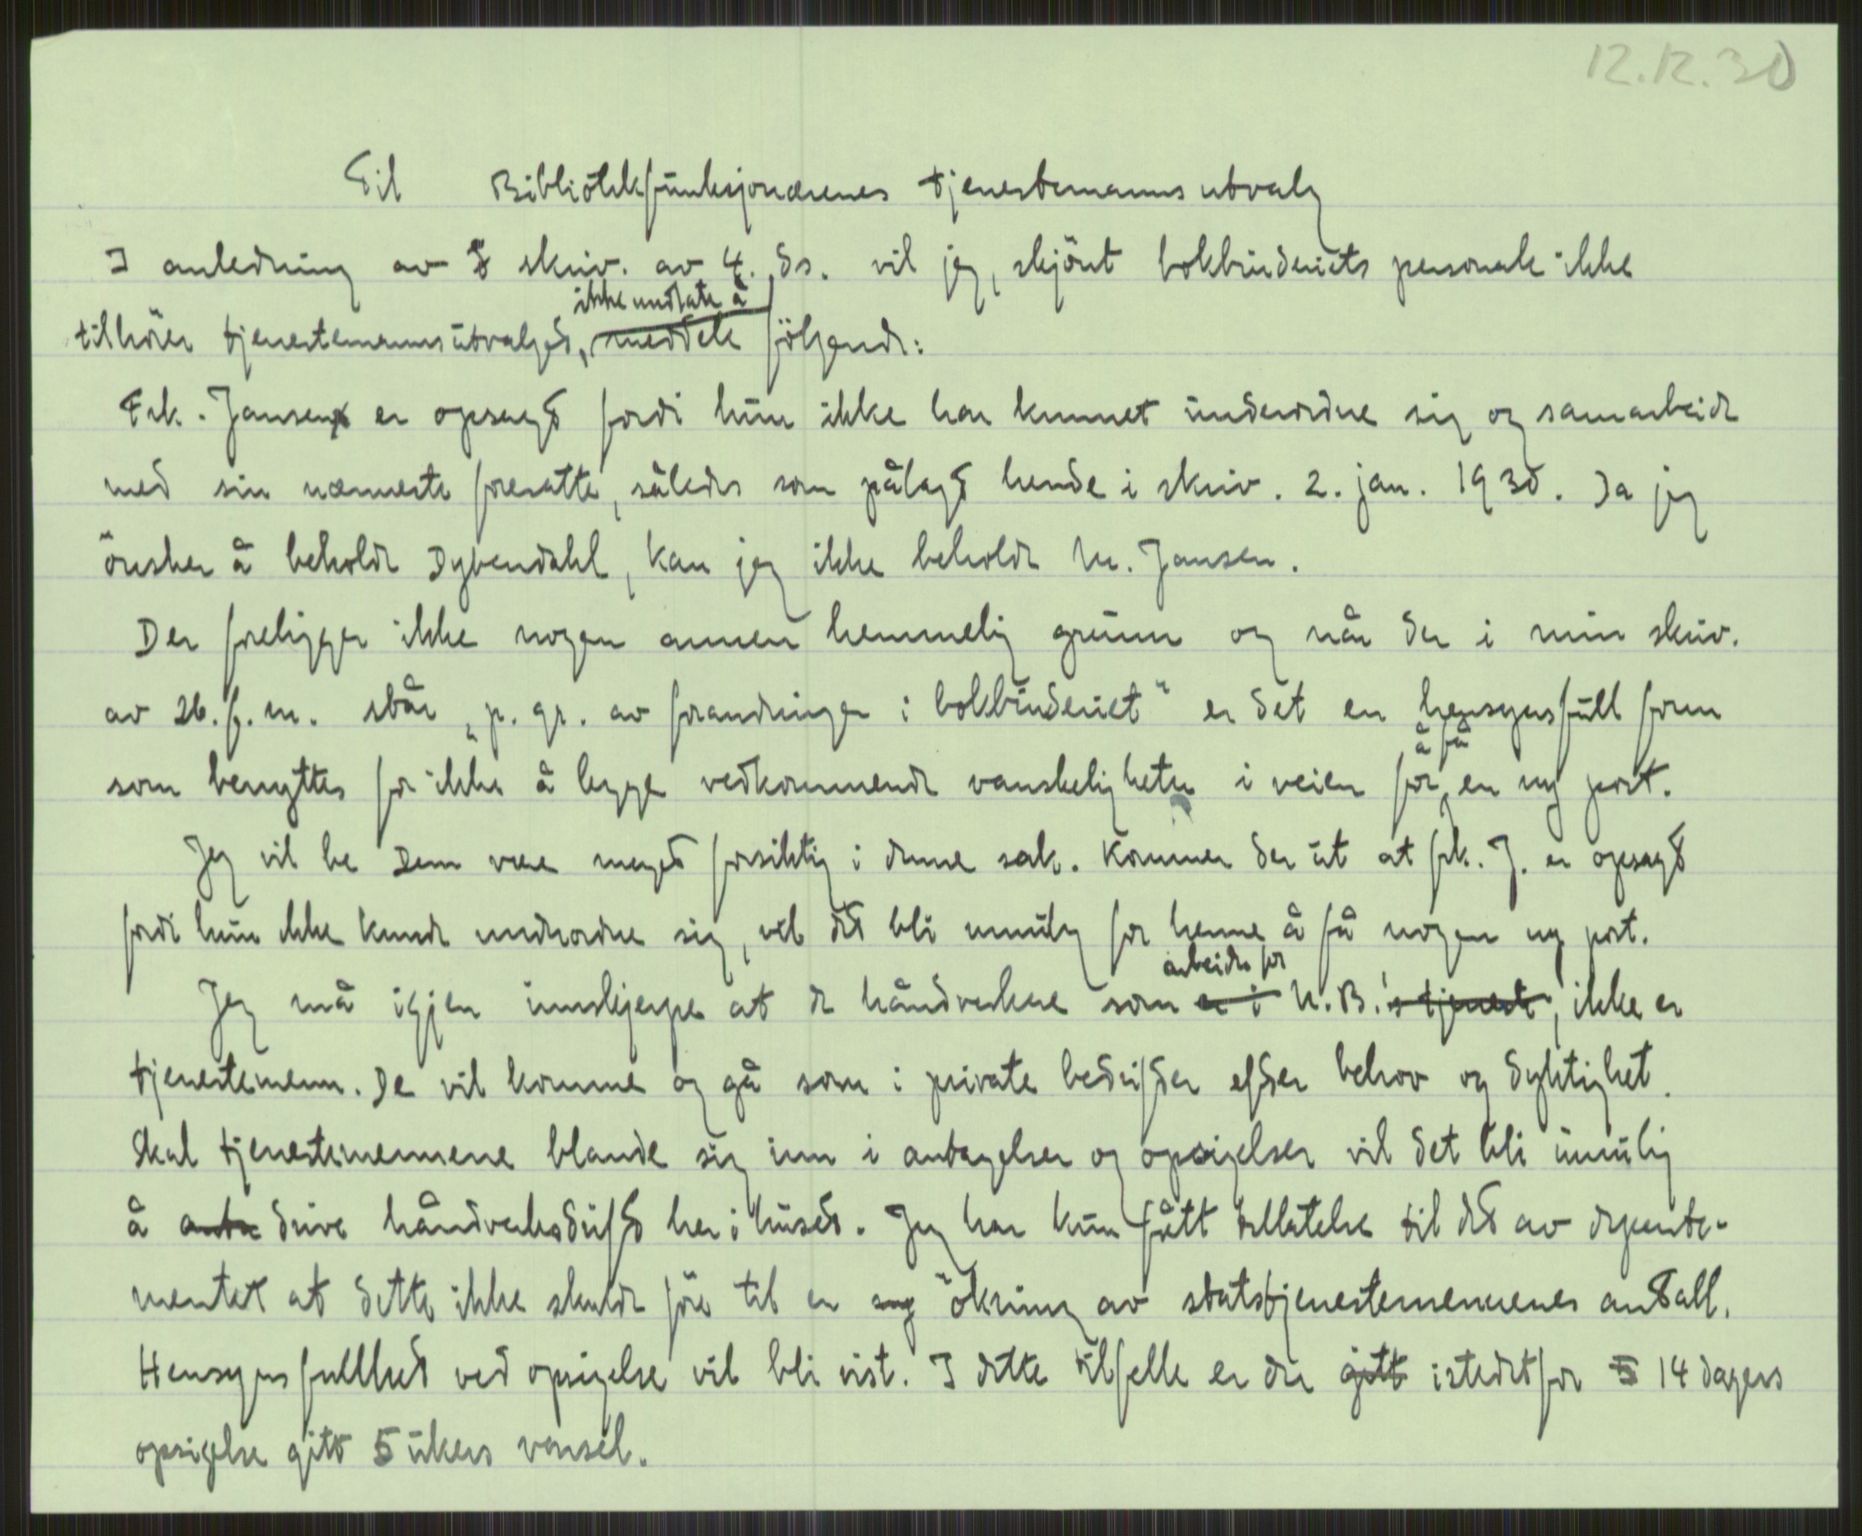 12.12.30
Til Bibliotekfunksjonærenes tjenestemannsutvalg
I anledning av skriv. av 4. ds. vil jeg, skjönt bokbinderiets personale ikke
ikke undlate å
tilhörer tjenestemannsutvalget, meddele fölgende:
Frk. Jansen er opsagt fordi hun ikke har kunnet underordne sig og samarbeide
med sin nærmeste foresatte, således som pålagt hende i skriv. 2. jan. 1930. Da jeg
önsker å beholde Dybendahl, kan jeg ikke beholde M. Jansen.
Der foreligger ikke nogen annen hemmelig grunn og når der i min skriv.
av 26. f. m. står „p. gr. av forandringer i bokbinderiet" er det en hensynsfull form
å få
som benyttes for ikke å legge vedkommende vanskeligheter i veien for en ny post.
Jeg vil be Dem være meget forsiktig i denne sak. Kommer der ut at frk. J. er opsagt
fordi hun ikke kunde underordne sig, vil det bli umulig for henne å få nogen ny post.
arbeider for
Jeg må igjen innskjerpe at de håndverkere som er i U.B.'s tjeneste, ikke er
tjenestemenn. De vil komme og gå som i private bedrifter efter behov og dyktighet.
Skal tjenestemennene blande sig inn i antagelser og opsigelser vil det bli umulig
å drive håndverksdrift her i huset. Jeg har kun fått tillatelse til det av departe-
mentet at dette ikke skulde före til en ökning av statstjenestemennenes antall.
Hensynsfullhet ved opsigelse vil bli vist. I dette tilfelle er der gitt istedetfor 5 14 dagers
opsigelse gitt 5 ukers varsel.